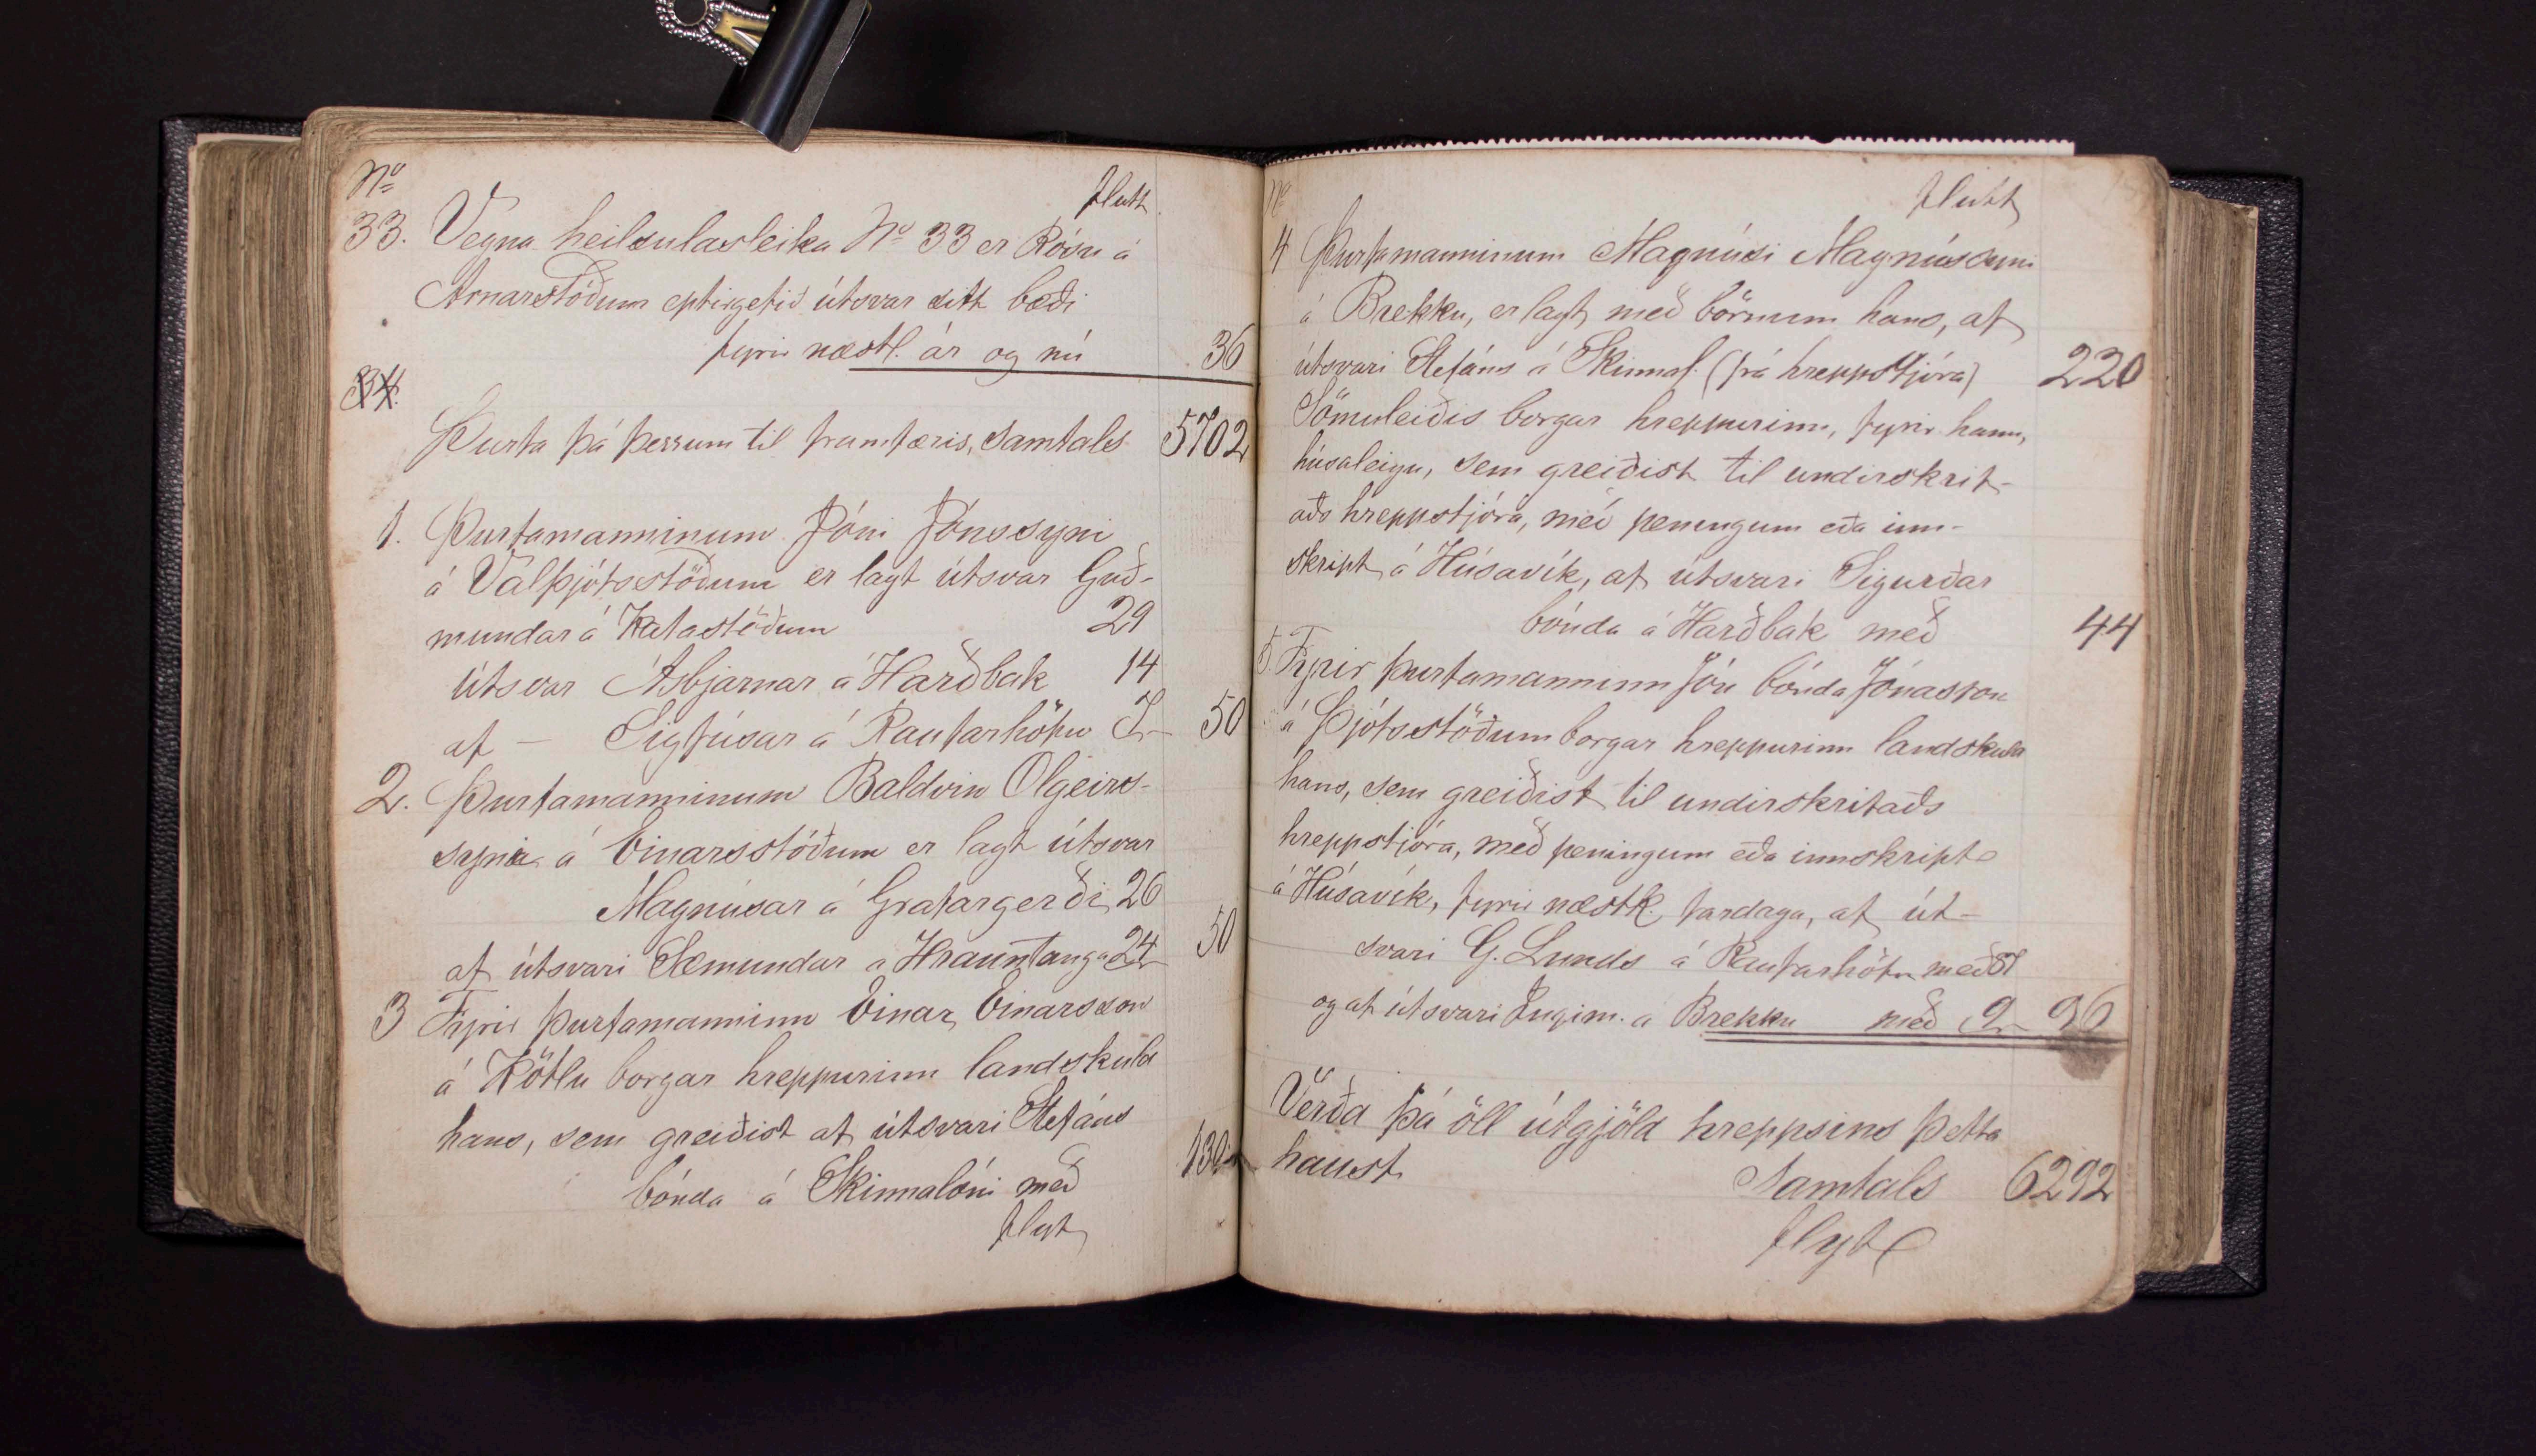 No
flutt
33. Vegna heilsulasleika No 33 er Rósu á
Arnarstöðum eptirgefið útsvar sitt bæði
fyrir næstl. ár og nú 36
34.
Þurfa þá þessum til framfæris, samtals 5702
1. Þurfamanninum Jóni Jónssyni
á Valþjófsstöðum er lagt útsvar Guð-
mundar á Katastöðum 29
útsvar Ásbjarnar á Harðbak 14
af — Sigfúsar á Raufarhöfn 7 50
2. Þurfamanninum Baldvin Olgeirs-
syni á Einarsstöðum er lagt útsvar
Magnúsar á Grafargerði 26
af útsvari Sæmundar á Hrauntanga 24 50
3 Fyrir þurfamanninn Einar Einarsson
á Kötlu borgar hreppurinn landskuld
hans, sem greiðist af útsvari Stefáns
bónda á Skinnalóni með 130
flyt
No
flutt
4 Þurfamanninum Magnúsi Magnússyni
á Brekku, er lagt með börnum hans, af
útsvari Stefáns á Skinnal. (frá hreppstjóra) 220
Sömuleiðis borgar hreppurinn, fyrir hann,
húsaleigu, sem greiðist til undirskrif-
aðs hreppstjóra, með peningum eða inn-
skript á Húsavík, af útsvari Sigurðar
bónda á Harðbak með 44
5. Fyrir þurfamanninn Jón bónda Jónasson
á Þjófsstöðum borgar hreppurinn landskuld
hans, sem greiðist til undirskrifaðs
hreppstjóra, með peningum eða innskript
á Húsavík, fyrir næstk. fardaga, af út-
svari G. Lunds á Raufarhöfn með 87
og af útsvari Ingim. á Brekku með 9 96
Verða þá öll útgjöld hreppsins þetta
haust
Samtals 6292
flyt